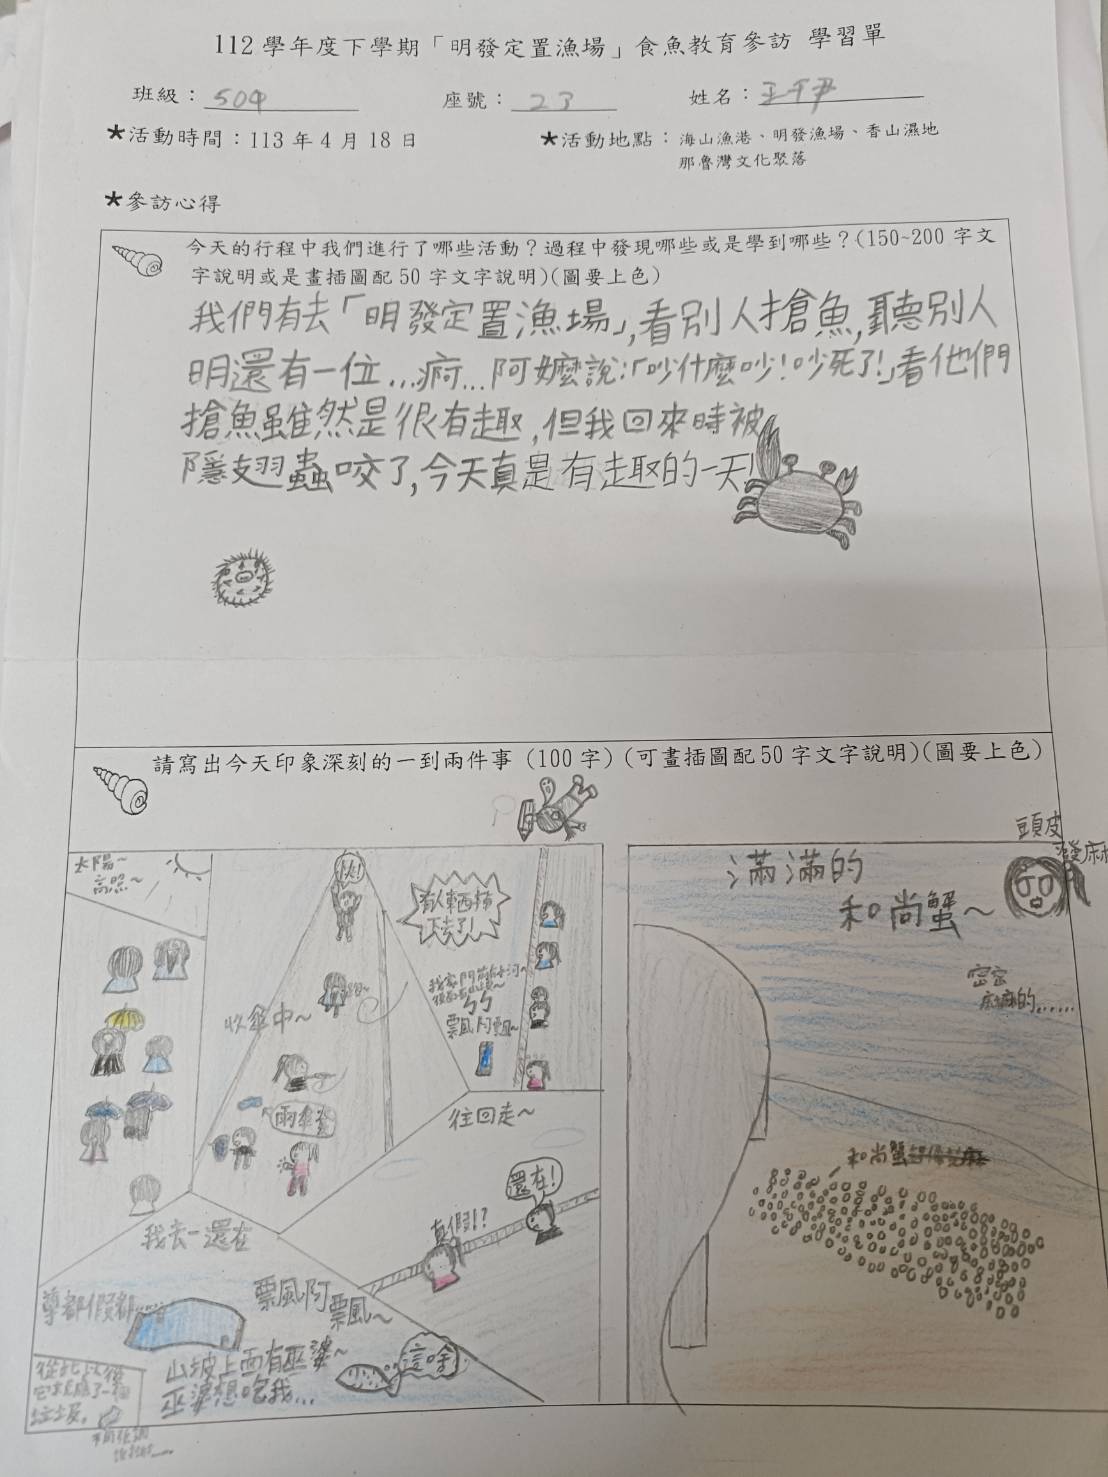 112學年度下學期「明發定置漁場」食魚教育參訪 學習單
班級：504 座號：23 姓名：王千尹
★活動時間：113年4月18日 ★活動地點：海山漁港、明發漁場、香山濕地
那魯灣文化聚落
★參訪心得
今天的行程中我們進行了哪些活動？過程中發現哪些或是學到哪些？(150~200字文
字說明或是畫插圖配50字文字說明)(圖要上色)
我們有去「明發定置漁場」,看別人搶魚,聽別人
明還有一位...病...阿嬤說:「吵什麼吵!吵死了!」看他們
搶魚雖然是很有趣,但我回來時被
隱翅蟲咬了,今天真是有趣的一天!
請寫出今天印象深刻的一到兩件事 (100字)(可畫插圖配50字文字說明)(圖要上色)
太陽~
高照~
收傘中~
有人東西掉
下去了!
飄阿飄~
雨傘套
往回走~
我去~還在
真假!?
還在!
飄風阿
飄風~
山坡上面有巫婆~
巫婆想吃我...
這啥
從此以後
頭皮
發麻
滿滿的
和尚蟹~
密密
麻麻的......
和尚蟹